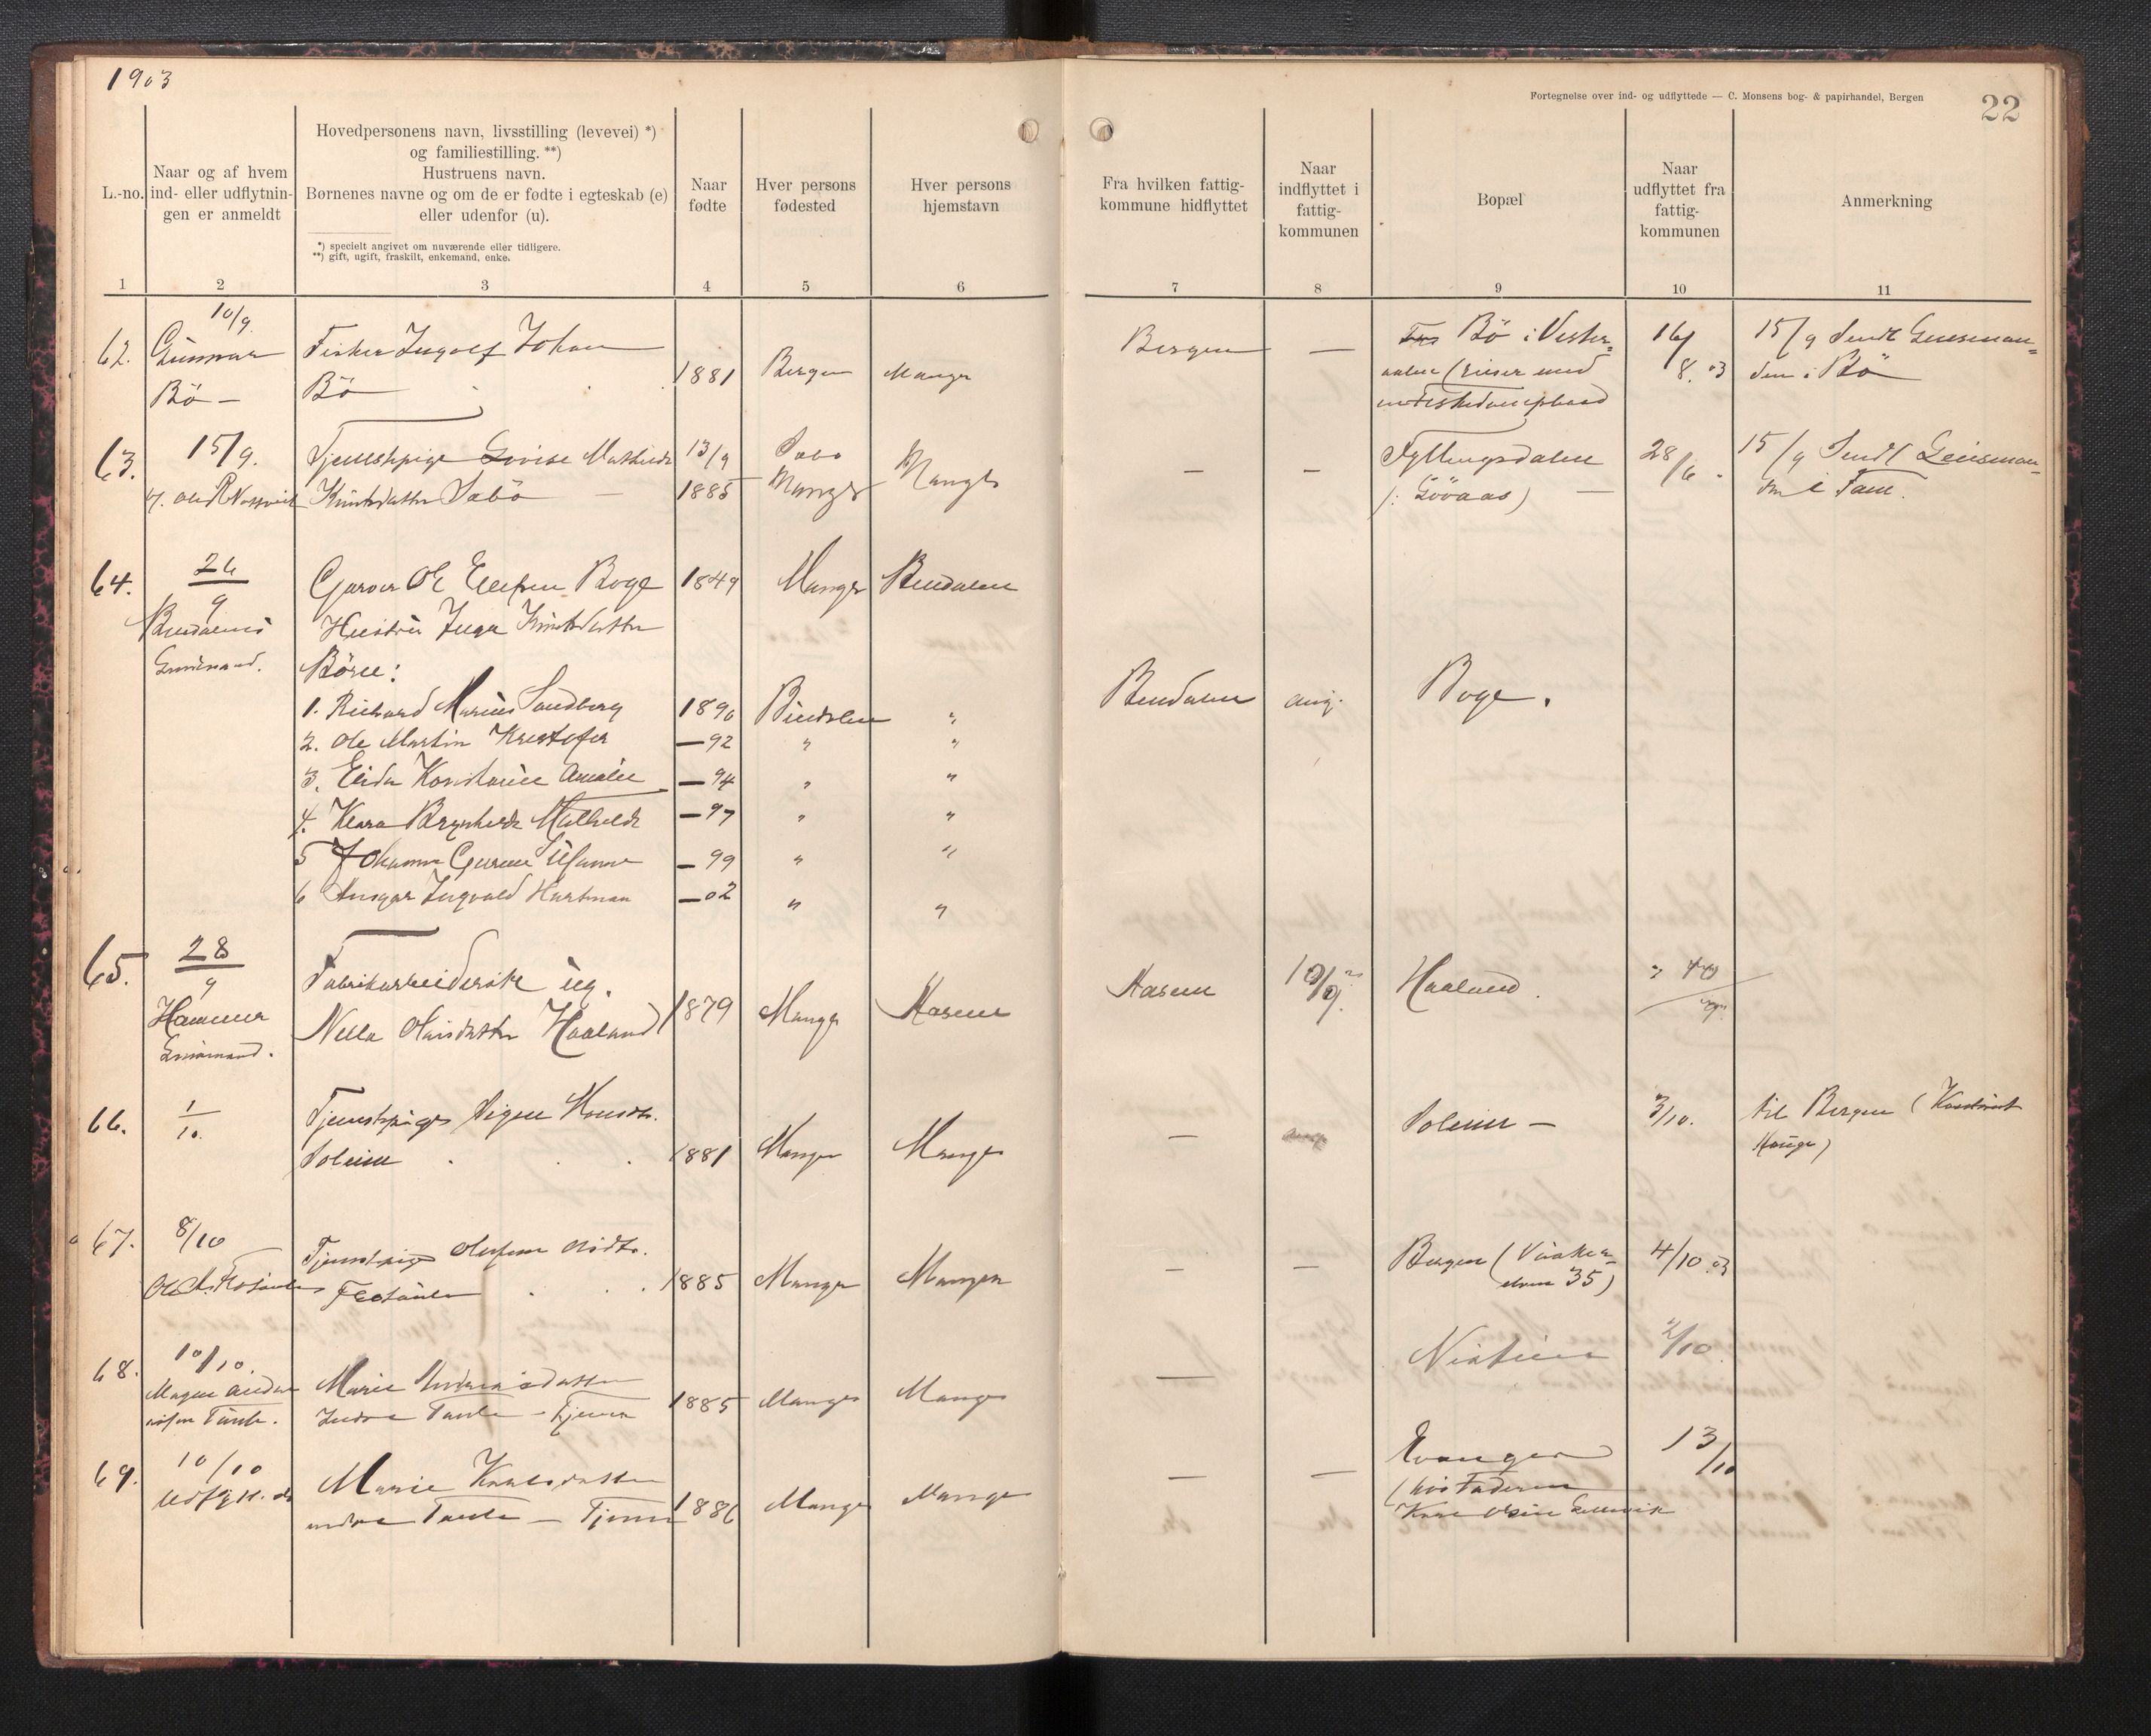 1903
Fortegnelse over ind- og udflyttede — C. Monsens bog- & papirhandel, Bergen
22
L.-no.
Naar og af hvem
ind- eller udflytnin-
gen er anmeldt
Hovedpersonens navn, livsstilling (levevei) *)
og familiestilling. **)
Hustruens navn.
Børnenes navne og om de er fødte i egteskab (e)
eller udenfor (u).
*) specielt angivet om nuværende eller tidligere.
**) gift, ugift, fraskilt, enkemand, enke.
Naar
fødte
Hver persons
fødested
Hver persons
hjemstavn
Fra hvilken fattig-
kommune hidflyttet
Naar
indflyttet i
fattig-
kommunen
Bopæl
Naar
udflyttet fra
fattig-
kommunen
Anmerkning
1 2 3 4 5 6 7 8 9 10 11
62.
10/9.
Gunnar
Bö —
Fisker Ingolf Johan
Bö
1881
Bergen
Manger
Bergen
—
Bö i Vester-
aalen (reiser med
16/
8. 03
15/9 Sendt Lensman-
den i Bö
63.
15/9.
Tjenestepige Lovise Mathilde
Knutsdatter Sæbö —
13/9
1885
Sæbö
Manger
Manger
—
—
Fyllingsdalen
(: Lövaas) —
28/6
15/9 Sendt Lensman-
den i Fane.
64.
26
9
Bindalens
Garver Ole Ellefsen Boge
Hustru Inga Knutsdatter
Börn:
1. Richard Marius Sandberg
2. Ole Martin Kristofer
3. Elida Konstanse Amalie
4. Klara Brynhilda Mathilde
5 Johanna Gurine Susanne
6 Ansgar Ingvald Hartman
1849
1890
—92
—94
—97
—99
—02
Manger
Bindalen
"
"
"
"
"
Bindalen
"
"
"
"
"
"
Bindalen
aug.
Boge.
65.
28
9
Hammer
Lensmand.
Fabrikarbeiderske ug.
Nella Olaisdatter Haaland
1879
Manger
Hasum
Haaland
66.
1
10.
Tjenestepige Signe Monsdtr.
Soleim
1881
Manger
Manger
—
Soleim —
3/10.
til Bergen (
67.
8/10
Tjenestepige
1885
Manger
Manger
—
—
Bergen (
35)
4/10 03
68.
10/10.
Marie Andreasdatter
Indre Tante - Tjener
1885
Manger
Manger
—
2/10
69.
10/10
Marie Karlsdatter
indre Tante — Tjener
1886
Manger
Manger
—
—
Evanger
(hos Faderen
13/10